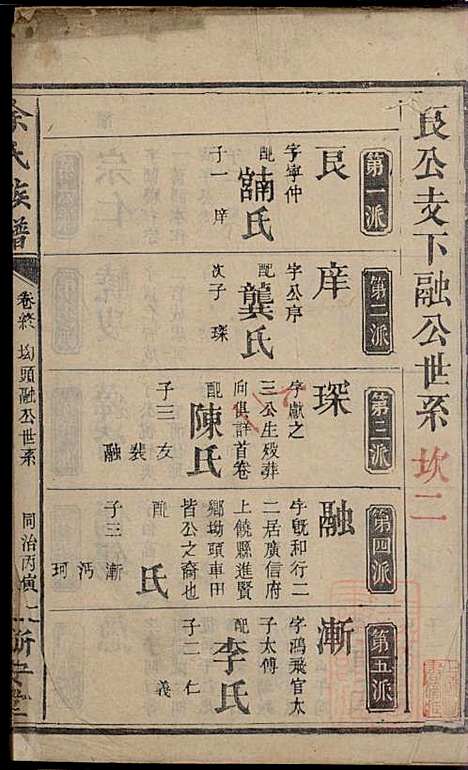 良公支下融公世系
坎二
第一派
良
字寧仲
配
氏
子一
庠
第二派
庠
字公序
配
龔氏
次子
琛
第三派
琛
字獻之
三公生歿葬
向俱詳首卷
配
陳氏
子三
友
裴
融
第四派
融
字既和行二
二居廣信府
上饒縣進賢
鄉坳頭車田
皆公之裔也
配
氏
子三
漸
沔
珂
第五派
漸
字鴻飛官太
子太傅
配
李氏
子二
仁
義
余氏族譜
卷終
坳頭融公世系
同治丙寅
新安堂